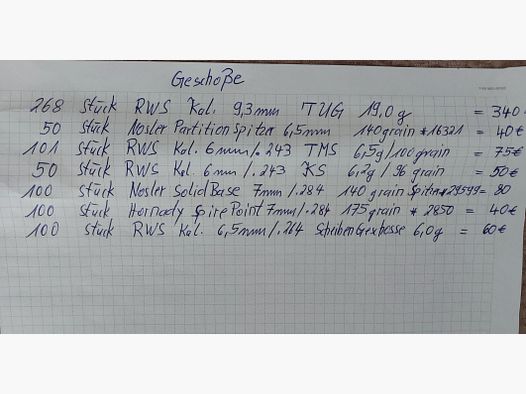 Geschoße
268 Stück RWS Kal. 9,3mm TUG 19,0g = 340
50 Stück Nosler Partition Spitzer 6,5mm 140grain *16321 = 40€
101 Stück RWS Kal. 6mm/.243 TMS 6,5g/100grain = 75€
50 Stück RWS Kal. 6mm/.243 KS 6,2g/96 grain = 50€
100 Stück Nosler Solid Base 7mm/.284 140 grain Spitzer *29599 = 80
100 Stück Hornady Spire Point 7mm/.284 175grain * 2850 = 40€
100 Stück RWS Kal. 6,5mm/.264 6,0g = 60€